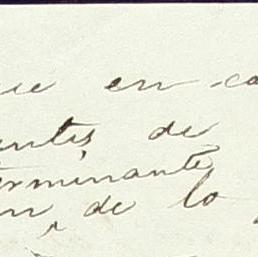 ue en ca
ntes, de
erminante
n, de lo